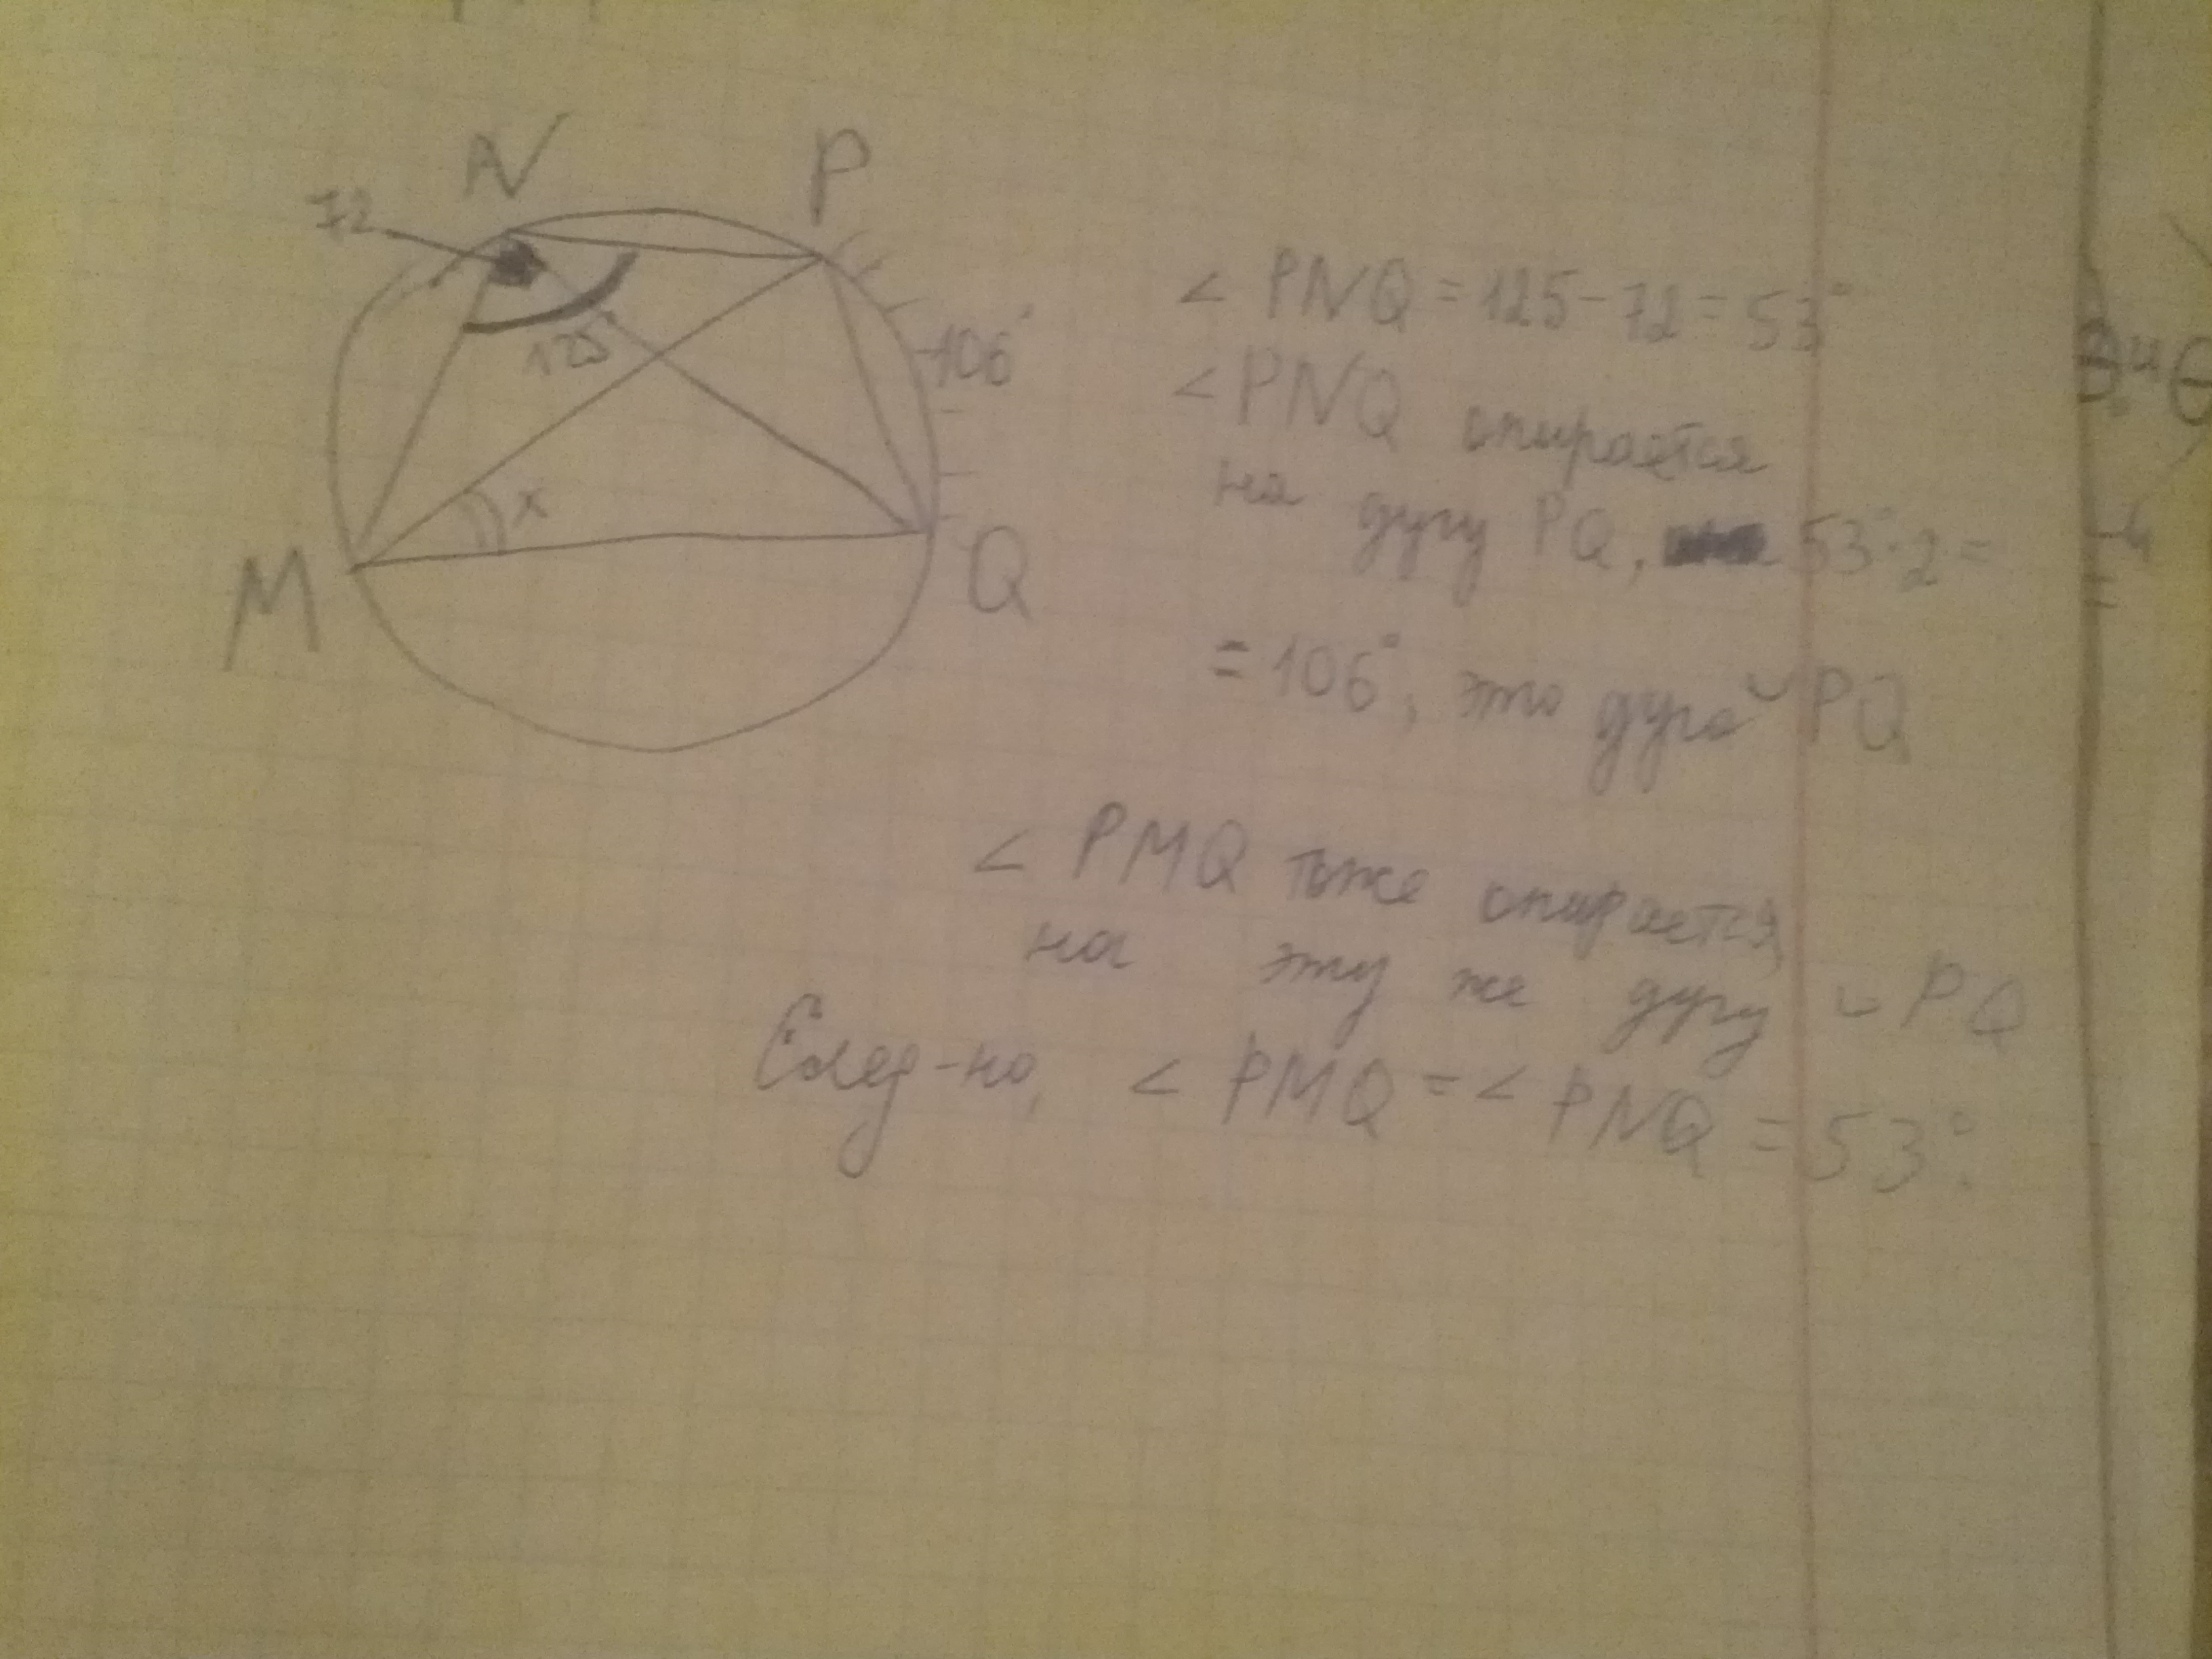 N
P
72
125
106°
x
M
Q
∠ PNQ = 125 - 72 = 53°
∠ PNQ опирается
на дугу PQ, 53°·2 =
= 106°, это дуга ◡ PQ
∠ PMQ тоже опирается
на эту же дугу ◡ PQ
След-но, ∠ PMQ = ∠ PNQ = 53°.